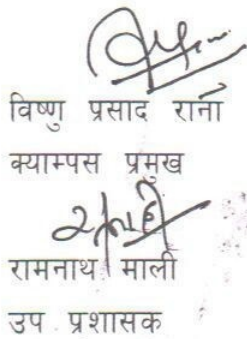 विष्णु प्रसाद राना
क्याम्पस प्रमुख
रामनाथ माली
उप प्रशासक